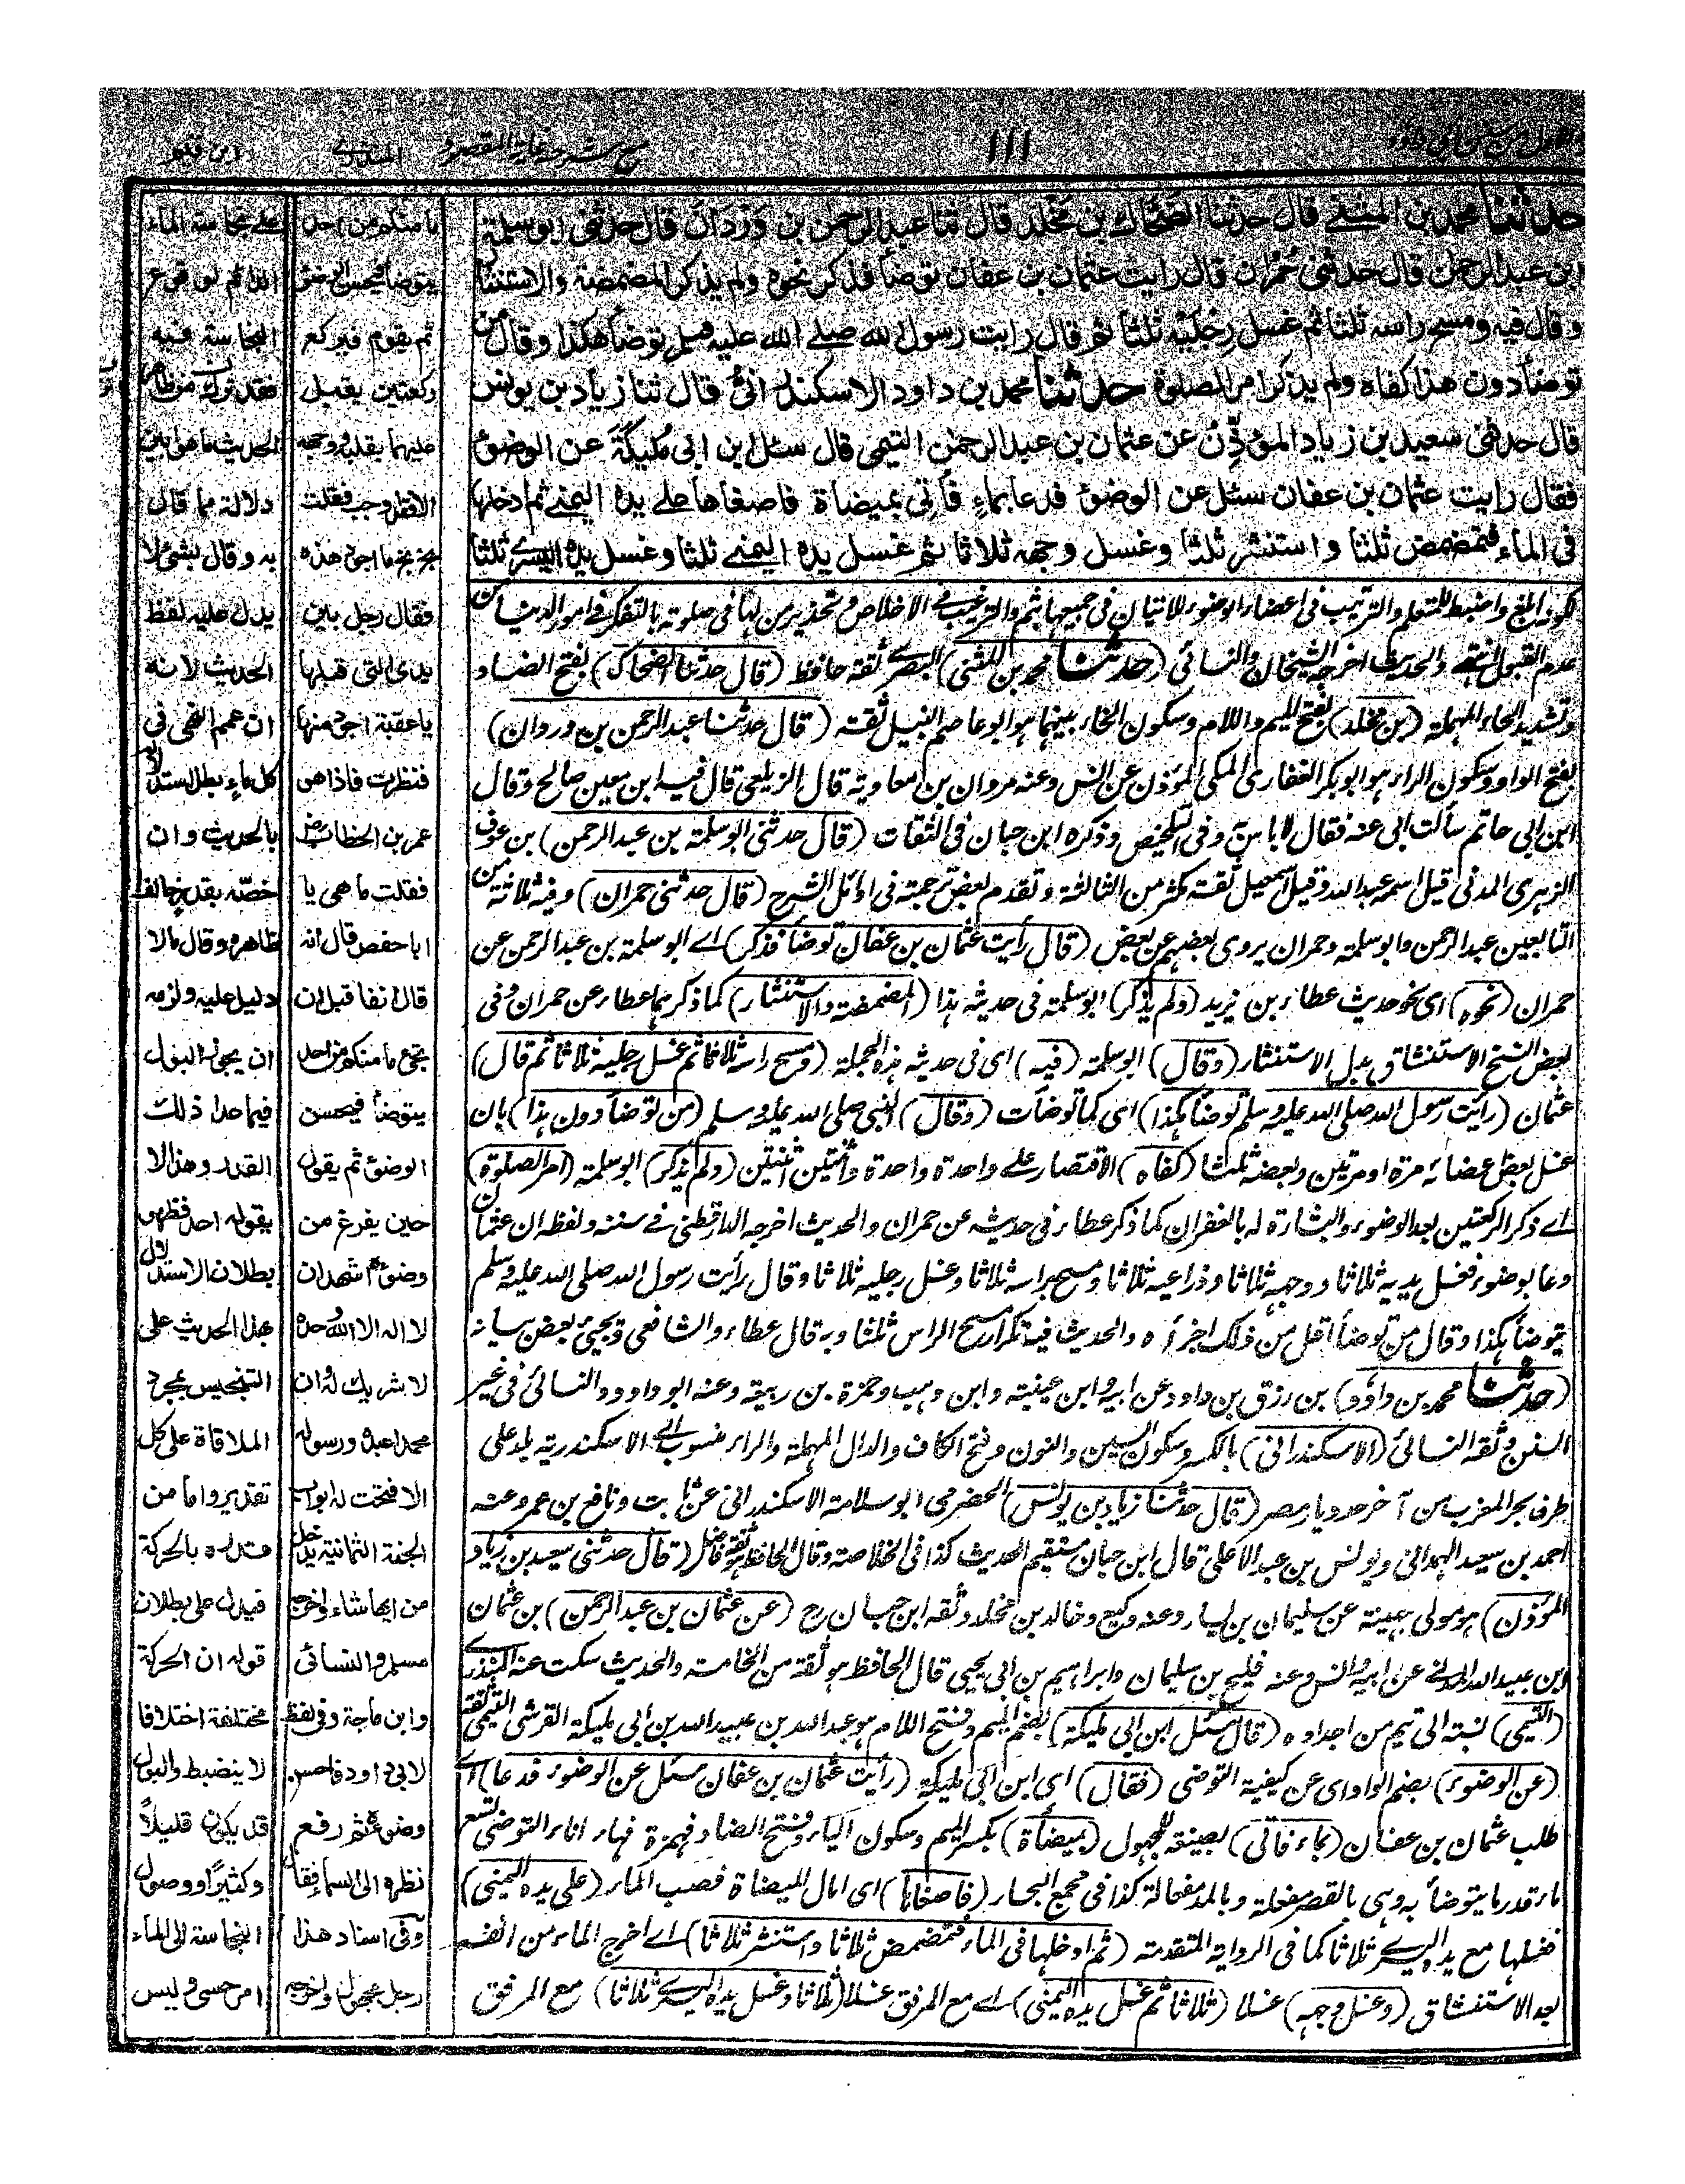 الاول من سنن ابی داؤد
١١١
مع شرحه غاية المقصود
المنذری
ابن قیم
حدثنا محمد بن المثنے قال حدثنا الضحاك بن مخلد قال ثنا عبد الرحمن بن وَرْدَانَ قال حدثنی ابو سلمة
ابن عبد الرحمن قال حدثنی حُمران قال رایت عثمان بن عفان توضأ فذكر نحوه ولم یذكر المضمضة والاستنثار
وقال فیه ومسح راسه ثلثا ثم غسل رِجْلَیْهِ ثلثا ثم قال رایت رسول الله صلے الله علیه وسلم توضأ هكذا وقال من
توضأ دون هذا كفاه ولم یذكر امر الصلوة حدثنا محمد بن داود الاسكندرانیُّ قال ثنا زیاد بن یونس
قال حدثنی سعید بن زیاد المؤذِّنُ عن عثمان بن عبد الرحمن التیمی قال سئل ابن ابی مُلیكَةَ عن الوضوء
فقال رایت عثمان بن عفان سئل عن الوضوء فدعا بماءٍ فأُتِی بمیضأة فاصغاها علے یده الیمنے ثم ادخلها
فی الماء فتمضمض ثلثا واستنثر ثلثا وغسل وجهه ثلاثا ثم غسل یده الیمنے ثلثا وغسل یده الیسرے ثلثا
لكونه ابلغ واضبط للمتعلم والترتیب فی اعضاء الوضوء للاتیان فی جمیعها بثم والترغیب فے الاخلاص وتحذیر من لها فی صلوته بالتفكر فے امور الدنیا من
عدم القبول انتهے والحدیث اخرجه الشیخان والنسائی (حدثنا محمد بن المثنی) البصرے ثقة حافظ (قال حدثنا الضحاك) بفتح الضاد
وتشدید الحاء المهملة (بن مخلد) بفتح المیم واللام وسكون الخاء بینهما هو ابو عاصم النبیل ثقة (قال حدثنا عبد الرحمن بن وردان)
بفتح الواو وسكون الراء هو ابو بكر الغفاری المكی المؤذن عن انس وعنه مروان بن معاویة قال الزیلعی قال فیه ابن معین صالح وقال
ابن ابی حاتم سألت ابی عنه فقال لا باس به وفی التلخیص وذكره ابن حبان فی الثقات (قال حدثنی ابو سلمة بن عبد الرحمن) بن عوف
الزهری المدنی قیل اسمه عبد الله وقیل اسمعیل ثقة مكثر من الثالثة وتقدم بعض ترجمته فی اوائل الشرح (قال حدثنی حمران) وفیه ثلاثة من
التابعین عبد الرحمن وابو سلمة وحمران یروی بعضهم عن بعض (قال رأیت عثمان بن عفان توضأ فذكر) اے ابو سلمة بن عبد الرحمن عن
حمران (نحوه) ای نحو حدیث عطاء بن یزید (ولم یذكر) ابو سلمة فی حدیثه هذا (المضمضة والاستنثار) كما ذكرهما عطاء عن حمران وفی
بعض النسخ الاستنشاق بدل الاستنثار (وقال) ابو سلمة (فیه) ای فی حدیثه هذه الجملة (ومسح راسه ثلاثا ثم غسل رجلیه ثلاثا ثم قال)
عثمان (رأیت رسول الله صلی الله علیه وسلم توضأ هكذا) ای كما توضأت (وقال) النبی صلی الله علیه وسلم (من توضأ دون هذا) بان
غسل بعض اعضائه مرة او مرتین وبعضه ثلثا (كفاه) الاقتصار علے واحدة واحدة واثنتین اثنتین (ولم یذكر) ابو سلمة (امر الصلوة)
اے ذكر الركعتین بعد الوضوء والبشارة له بالغفران كما ذكر عطاء فی حدیثه عن حمران والحدیث اخرجه الدارقطنی فے سننه ولفظه ان عثمان
دعا بوضوء فغسل یدیه ثلاثا ووجهه ثلاثا وذراعیه ثلاثا ومسح براسه ثلاثا وغسل رجلیه ثلاثا وقال رأیت رسول الله صلی الله علیه وسلم
یتوضأ هكذا وقال من توضأ اقل من ذلك اجزأه والحدیث فیه تكرار مسح الراس ثلثا وبه قال عطاء والشافعی ویجیئ بعض بیانه
(حدثنا محمد بن داود) بن رزق بن داود عن ابیه وابن عیینة وابن وهب وحمزة بن ربیعة وعنه ابو داود والنسائی فی غیر
السنن وثقه النسائی (الاسكندرانی) بالكسر وسكون السین والنون وفتح الكاف والدال المهملة والراء منسوب الے الاسكندریة بلد علی
طرف بحر المغرب من آخر حد دیار مصر (قال حدثنا زیاد بن یونس) الحضرمی ابو سلامة الاسكندرانی عن ... ونافع بن عمر وعنه
احمد بن سعید الهمدانی ویونس بن عبد الاعلی قال ابن حبان مستقیم الحدیث كذا فی الخلاصة وقال الحافظ هو ثقة فاضل (قال حدثنی سعید بن زیاد
المؤذن) هو مولی جهینة عن سلیمان بن یسار وعنه وكیع وخالد بن مخلد وثقه ابن حبان رح (عن عثمان بن عبد الرحمن) بن عثمان
ابن عبید الله المدنے عن ابیه وانس وعنه فلیح بن سلیمان وابراهیم بن ابی یحیی قال الحافظ هو ثقة من الخامسة والحدیث سكت عنه المنذرے
(التیمی) نسبة الی تیم من اجداده (قال سئل ابن ابی ملیكة) بضم المیم وفتح اللام هو عبد الله بن عبید الله بن ابی ملیكة القرشی التیمی ثقة
(عن الوضوء) بضم الواو ای عن كیفیة التوضی (فقال) ای ابن ابی ملیكة (رأیت عثمان بن عفان سئل عن الوضوء فدعا) اے
طلب عثمان بن عفان (بماء فاتی) بصیغة المجهول (بمیضأة) بكسر المیم وسكون الیاء وفتح الضاد فهمزة فهاء اناء التوضی تسع
ماء قدر ما یتوضأ به وهی بالقصر مفعلة وبالمد مفعالة كذا فی مجمع البحار (فاصغاها) ای امال المیضاة فصب الماء (علی یده الیمنی)
فغسلها مع یده الیسرے ثلاثا كما فی الروایة المتقدمة (ثم ادخلها فی الماء فتمضمض ثلاثا واستنثر ثلاثا) اے اخرج الماء من انفه
بعد الاستنشاق (وغسل وجهه) غسلا (ثلاثا ثم غسل یده الیمنی) اے مع المرفق غسلا (ثلاثا وغسل یده الیسرے ثلاثا) مع المرفق
ما منكم من احد
یتوضأ فیحسن الوضوء
ثم یقوم فیركع
ركعتین یقبل
علیهما بقلبه ووجهه
الا فقد وجب فقلت
بخ بخ ما اجود هذه
فقال رجل بین
یدی التی قبلها
یا عقبة اجود منها
فنظرت فاذا هو
عمر بن الخطاب رض
فقلت ما هی یا
ابا حفص قال انه
قال انفا قبل ان
تجئ ما منكم من احد
یتوضأ فیحسن
الوضوء ثم یقول
حین یفرغ من
وضوئه اشهد ان
لا اله الا الله وحده
لا شریك له وان
محمدا عبده ورسوله
الا فتحت له ابواب
الجنة الثمانیة یدخل
من ایها شاء واخرجه
مسلم والنسائی
وابن ماجة وفی لفظ
لابی داود فاحسن
وضوئه ثم رفع
نظره الی السماء فقال
وفی اسناد هذا
رجل مجهول واخرجه
علے نجاسة الماء
الدائم لوقوع
النجاسة فیه
فقد ترك من ظاهر
الحدیث ما هو ابین
دلالة مما قال
به وقال بشئ لا
یدل علیه لفظ
الحدیث لانه
ان عمم النهی فی
كل ماء بطل استدلاله
بالحدیث وان
خصه بقدر خالف
ظاهره وقال ما لا
دلیل علیه ولزمه
ان یجوز البول
فیما عدا ذلك
القدر وهذا لا
یقوله احد فظهر
بطلان الاستدلال
بهذا الحدیث علی
التنجیس بمجرد
الملاقاة علی كل
تقدیر واما من
قدره بالحركة
فیدل علی بطلان
قوله ان الحركة
مختلفة اختلافا
لا ینضبط والبول
قد یكون قلیلاً
وكثیراً ووصول
النجاسة الی الماء
امر حسی ولیس